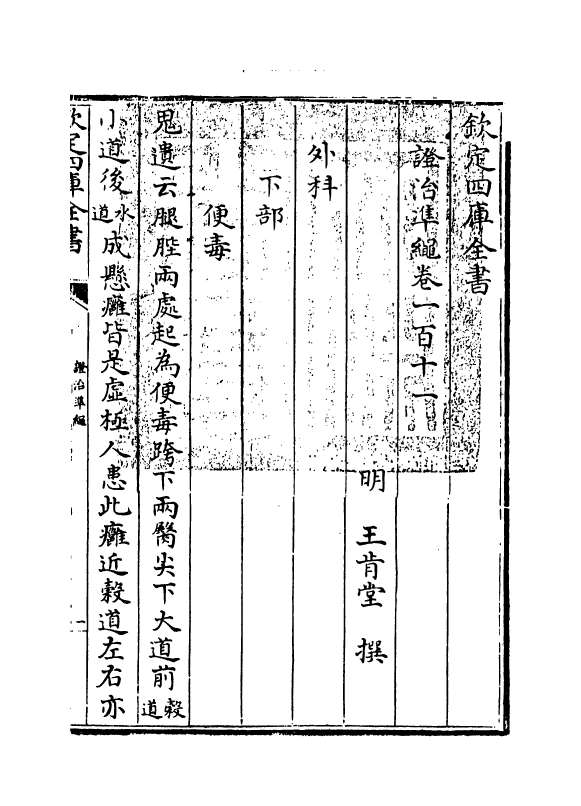 欽定四庫全書
證治準繩卷一百十一
明 王肯堂 撰
外科
下部
便毒
鬼遺云腿胜兩處起為便毒跨下兩臀尖下大道前穀道
小道後水道成懸癰皆是虛極人患此癰近穀道左右亦
欽定四庫全書
證治準繩
一